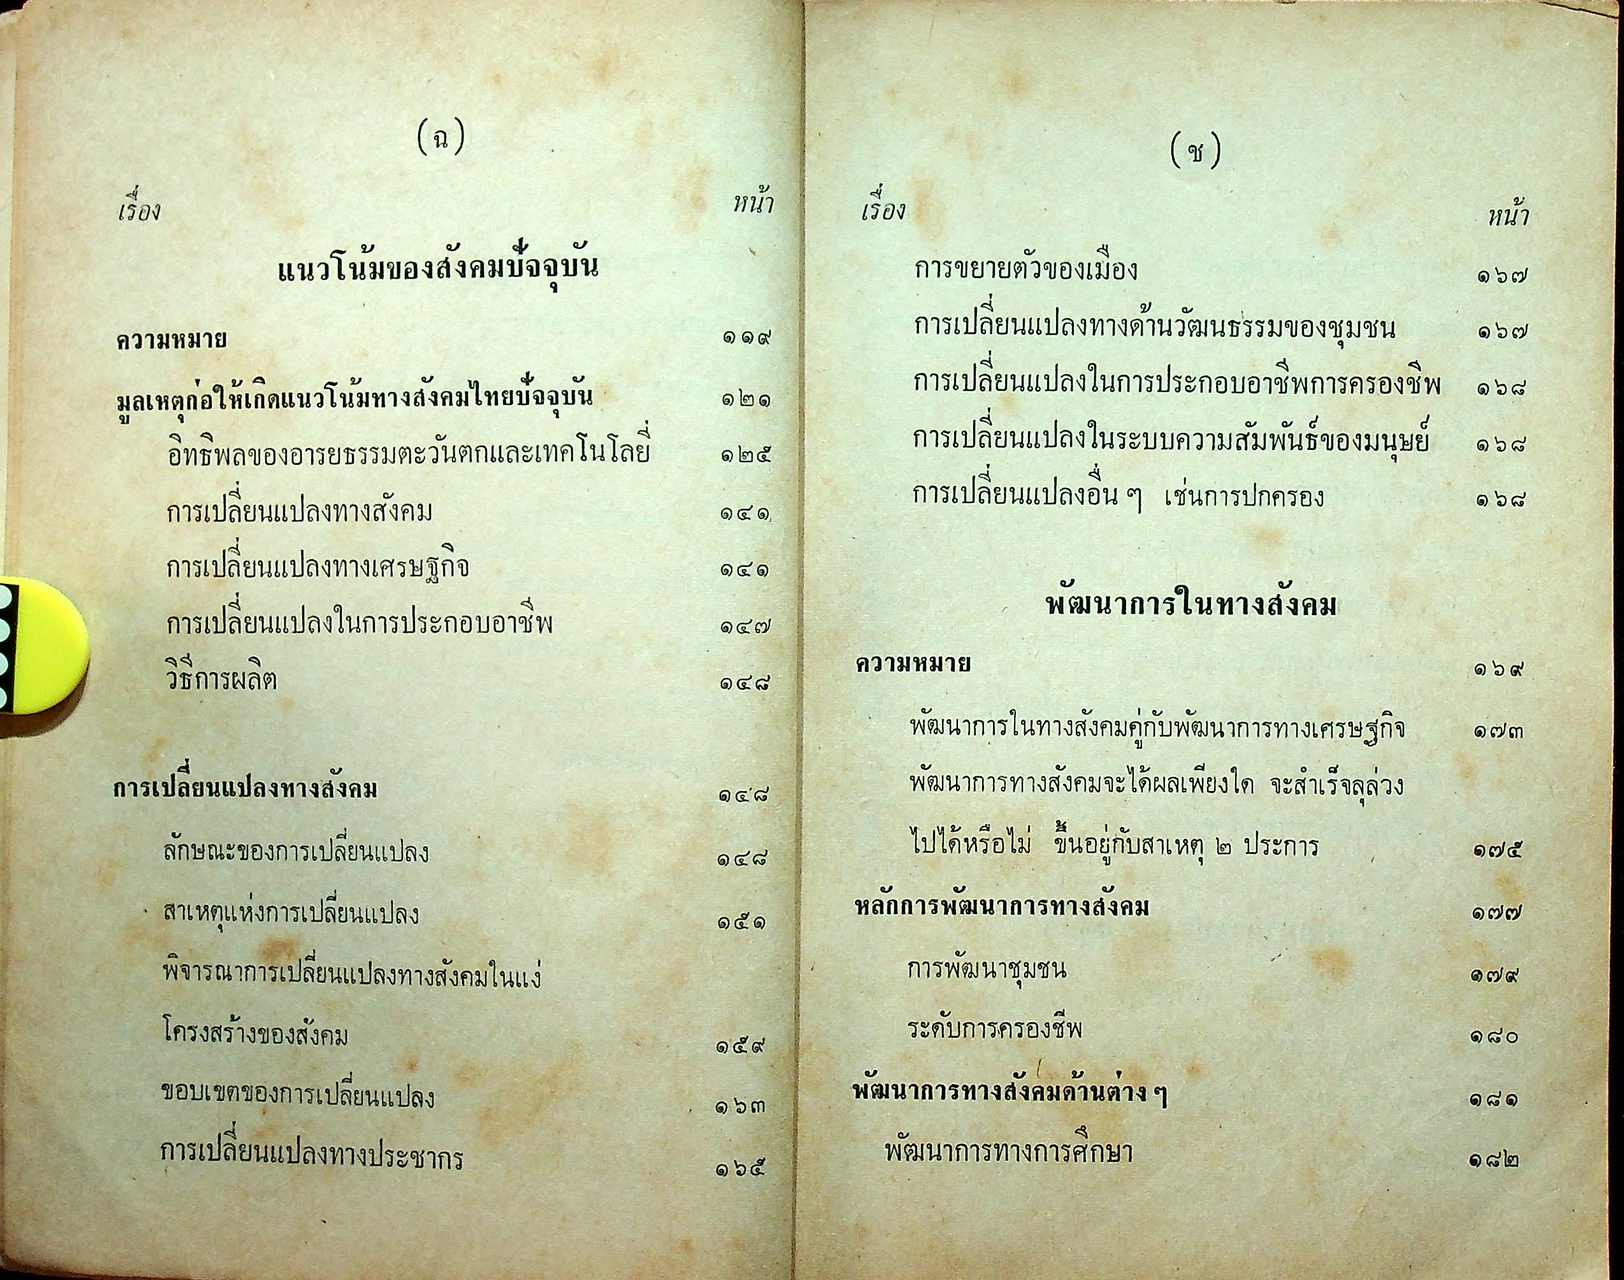 (ฉ)
เรื่อง หน้า
แนวโน้มของสังคมปัจจุบัน
ความหมาย ๑๑๙
มูลเหตุก่อให้เกิดแนวโน้มทางสังคมไทยปัจจุบัน ๑๒๑
อิทธิพลของอารยธรรมตะวันตกและเทคโนโลยี่ ๑๒๕
การเปลี่ยนแปลงทางสังคม ๑๔๑
การเปลี่ยนแปลงทางเศรษฐกิจ ๑๔๑
การเปลี่ยนแปลงในการประกอบอาชีพ ๑๔๗
วิธีการผลิต ๑๔๘
การเปลี่ยนแปลงทางสังคม ๑๔๘
ลักษณะของการเปลี่ยนแปลง ๑๔๘
สาเหตุแห่งการเปลี่ยนแปลง ๑๕๑
พิจารณาการเปลี่ยนแปลงทางสังคมในแง่
โครงสร้างของสังคม ๑๕๙
ขอบเขตของการเปลี่ยนแปลง ๑๖๓
การเปลี่ยนแปลงทางประชากร ๑๖๕
(ช)
เรื่อง หน้า
การขยายตัวของเมือง ๑๖๗
การเปลี่ยนแปลงทางด้านวัฒนธรรมของชุมชน ๑๖๗
การเปลี่ยนแปลงในการประกอบอาชีพการครองชีพ ๑๖๘
การเปลี่ยนแปลงในระบบความสัมพันธ์ของมนุษย์ ๑๖๘
การเปลี่ยนแปลงอื่น ๆ เช่นการปกครอง ๑๖๘
พัฒนาการในทางสังคม
ความหมาย ๑๖๙
พัฒนาการในทางสังคมคู่กับพัฒนาการทางเศรษฐกิจ ๑๗๓
พัฒนาการทางสังคมจะได้ผลเพียงใด จะสำเร็จลุล่วง
ไปได้หรือไม่ ขึ้นอยู่กับสาเหตุ ๒ ประการ ๑๗๕
หลักการพัฒนาการทางสังคม ๑๗๗
การพัฒนาชุมชน ๑๗๙
ระดับการครองชีพ ๑๘๐
พัฒนาการทางสังคมด้านต่าง ๆ ๑๘๑
พัฒนาการทางการศึกษา ๑๘๒